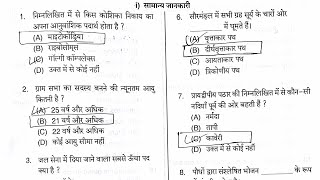 i) सामान्य जानकारी
1. निम्नलिखित में से किस कोशिका निकाय का
अपना आनुवांशिक पदार्थ होता है ?
(A) माइटोकॉंड्रिया
(B) राइबोसोम्स
(C) गॉल्गी कॉम्प्लेक्स
(D) उक्त में से कोई नहीं
2. ग्राम सभा का सदस्य बनने की न्यूनतम आयु
कितनी है ?
(A) 25 वर्ष और अधिक
(B) 21 वर्ष और अधिक
(C) 22 वर्ष और अधिक
(D) कोई आयु सीमा नहीं
3. जल सेना में दिया जाने वाला सबसे ऊँचा पद
क्या है ?
6. सौरमंडल में सभी ग्रह सूर्य के चारों ओर
में घूमते हैं।
(A) वृत्ताकार पथ
(B) दीर्घवृत्ताकार पथ
(C) आयताकार पथ
(D) त्रिकोणीय पथ
7. प्रायद्वीपीय पठार की निम्नलिखित में से कौन-सी
नदियाँ पूर्व की ओर बहती है ?
(A) नर्मदा
(B) तापी
(C) कावेरी
(D) उक्त में से कोई नहीं
8. पौधों द्वारा संश्लेषित भोजन ______ के रूप